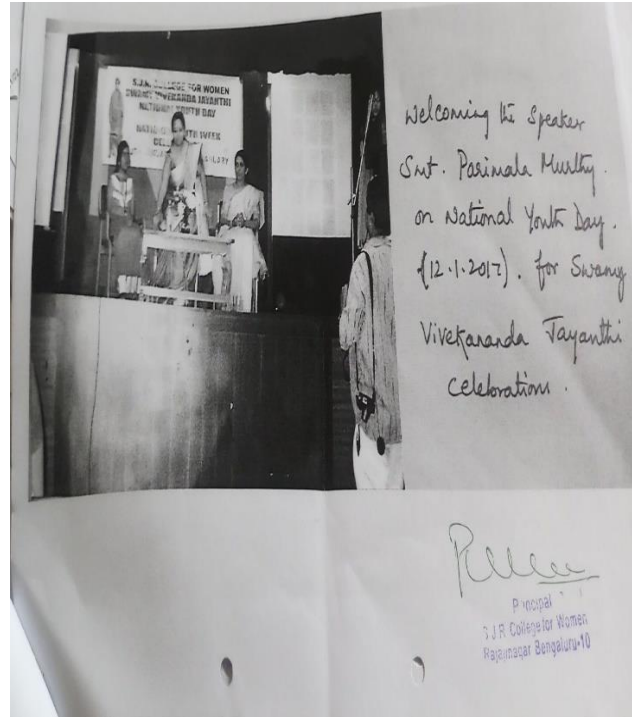 S.J.R. COLLEGE FOR WOMEN
SWAMY VIVEKANDA JAYANTHI
NATIONAL YOUTH DAY
NATIONAL YOUTH WEEK
Welcoming the Speaker
Smt. Parimala Murthy.
on National Youth Day.
(12.1.2017). for Swamy
Vivekananda Jayanthi
Celebrations.
Principal
S.J.R College for Women
Rajajinagar Bengaluru-10